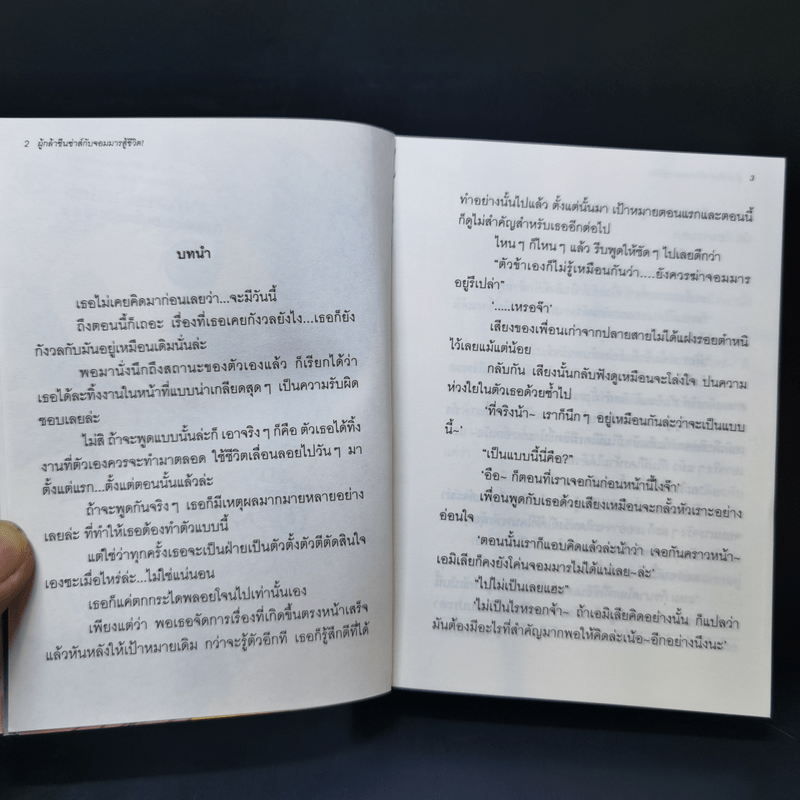 2 ผู้กล้าซึนซ่าส์กับจอมมารสู้ชีวิต!
บทนำ
เธอไม่เคยคิดมาก่อนเลยว่า...จะมีวันนี้
ถึงตอนนี้ก็เถอะ เรื่องที่เธอเคยกังวลยังไง...เธอก็ยัง
กังวลกับมันอยู่เหมือนเดิมนั่นล่ะ
พอมานั่งนึกถึงสถานะของตัวเองแล้ว ก็เรียกได้ว่า
เธอได้ละทิ้งงานในหน้าที่แบบน่าเกลียดสุดๆ เป็นความรับผิด
ชอบเลยล่ะ
ไม่สิ ถ้าจะพูดแบบนั้นล่ะก็ เอาจริงๆ ก็คือ ตัวเธอได้ทิ้ง
งานที่ตัวเองควรจะทำมาตลอด ใช้ชีวิตเลื่อนลอยไปวันๆ มา
ตั้งแต่แรก...ตั้งแต่ตอนนั้นแล้วล่ะ
ถ้าจะพูดกันจริงๆ เธอก็มีเหตุผลมากมายหลายอย่าง
เลยล่ะ ที่ทำให้เธอต้องทำตัวแบบนี้
แต่ใช่ว่าทุกครั้งเธอจะเป็นฝ่ายเป็นตัวตั้งตัวตีตัดสินใจ
เองซะเมื่อไหร่ล่ะ...ไม่ใช่แน่นอน
เธอก็แค่ตกกระไดพลอยโจนไปเท่านั้นเอง
เพียงแต่ว่า พอเธอจัดการเรื่องที่เกิดขึ้นตรงหน้าเสร็จ
แล้วหันหลังให้เป้าหมายเดิม กว่าจะรู้ตัวอีกที เธอก็รู้สึกดีที่ได้
3
ทำอย่างนั้นไปแล้ว ตั้งแต่นั้นมา เป้าหมายตอนแรกและตอนนี้
ก็ดูไม่สำคัญสำหรับเธออีกต่อไป
ไหนๆ ก็ไหนๆ แล้ว รีบพูดให้ชัดๆ ไปเลยดีกว่า
“ตัวข้าเองก็ไม่รู้เหมือนกันว่า....ยังควรฆ่าจอมมาร
อยู่รึเปล่า”
‘.....เหรอจ๊า’
เสียงของเพื่อนเก่าจากปลายสายไม่ได้แฝงรอยตำหนิ
ไว้เลยแม้แต่น้อย
กลับกัน เสียงนั้นกลับฟังดูเหมือนจะโล่งใจ ปนความ
ห่วงใยในตัวเธอด้วยซ้ำไป
‘ที่จริงน้า~ เราก็นึกๆ อยู่เหมือนกันล่ะว่าจะเป็นแบบ
นี้~’
“เป็นแบบนี้นี่คือ?”
‘อือ~ ก็ตอนที่เราเจอกันก่อนหน้านี้ไงจ๊า’
เพื่อนพูดกับเธอด้วยเสียงเหมือนจะกลั้วหัวเราะอย่าง
อ่อนใจ
‘ตอนนั้นเราก็แอบคิดแล้วล่ะน้าว่า เจอกันคราวหน้า~
เอมิเลียก็คงยังโค่นจอมมารไม่ได้แน่เลย~ล่ะ’
“ไปไม่เป็นเลยแฮะ”
‘ไม่เป็นไรหรอกจ้า~ ถ้าเอมิเลียคิดอย่างนั้น ก็แปลว่า
มันต้องมีอะไรที่สำคัญมากพอให้คิดล่ะเน้อ~อีกอย่างนึงนะ’